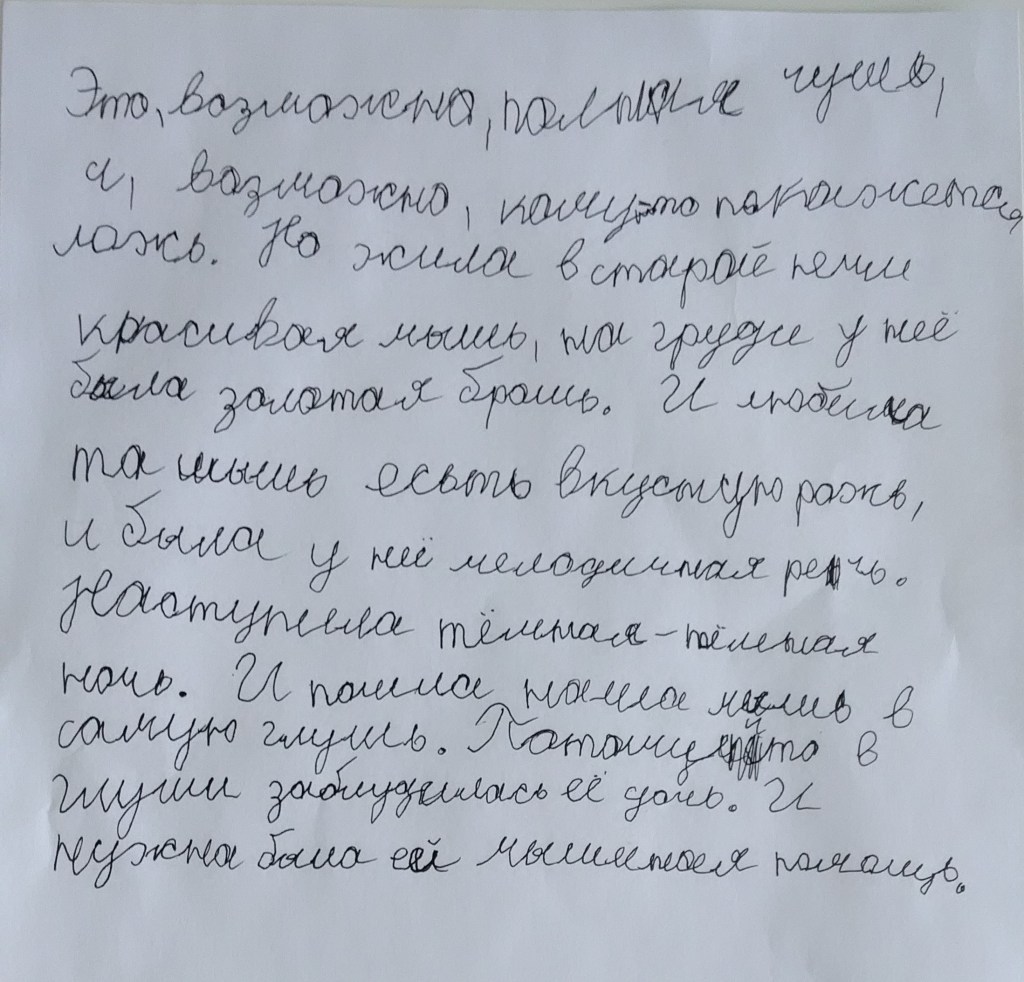 Это, возможно, полная чушь,
а, возможно, кому-то покажется
ложь. Но жила в старой печи
красивая мышь, на груди у неё
была золотая брошь. И любила
та мышь есьть вкусную рожь,
и была у неё мелодичная речь.
Наступила тёмная-тёмная
ночь. И пошла наша мышь в
самую глушь. Потому что в
глуши заблудилась её дочь. И
нужна была ей мышиная помощь.